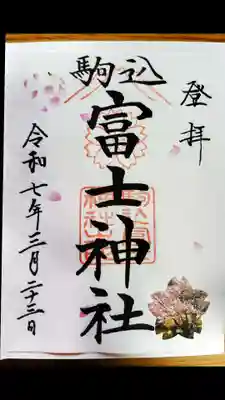 登拝
駒込
富士神社
令和七年三月二十三日